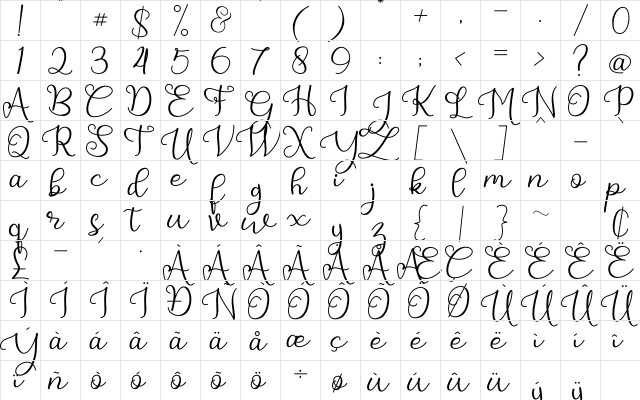 ! # $ % & ( ) + , - . / 0
1 2 3 4 5 6 7 8 9 : ; < = > ? @
A B C D E F G H I J K L M N O P
Q R S T U V W X Y Z [ \ ] ^ _
a b c d e f g h i j k l m n o p
q r s t u v w x y z { | } ~ ¢
£ ¯ · À Á Â Ã Ä Å Æ Ç È É Ê Ë
Ì Í Î Ï Ð Ñ Ò Ó Ô Õ Ö Ø Ù Ú Û Ü
Ý à á â ã ä å æ ç è é ê ë ì í î
ï ñ ò ó ô õ ö ÷ ø ù ú û ü ý ÿ